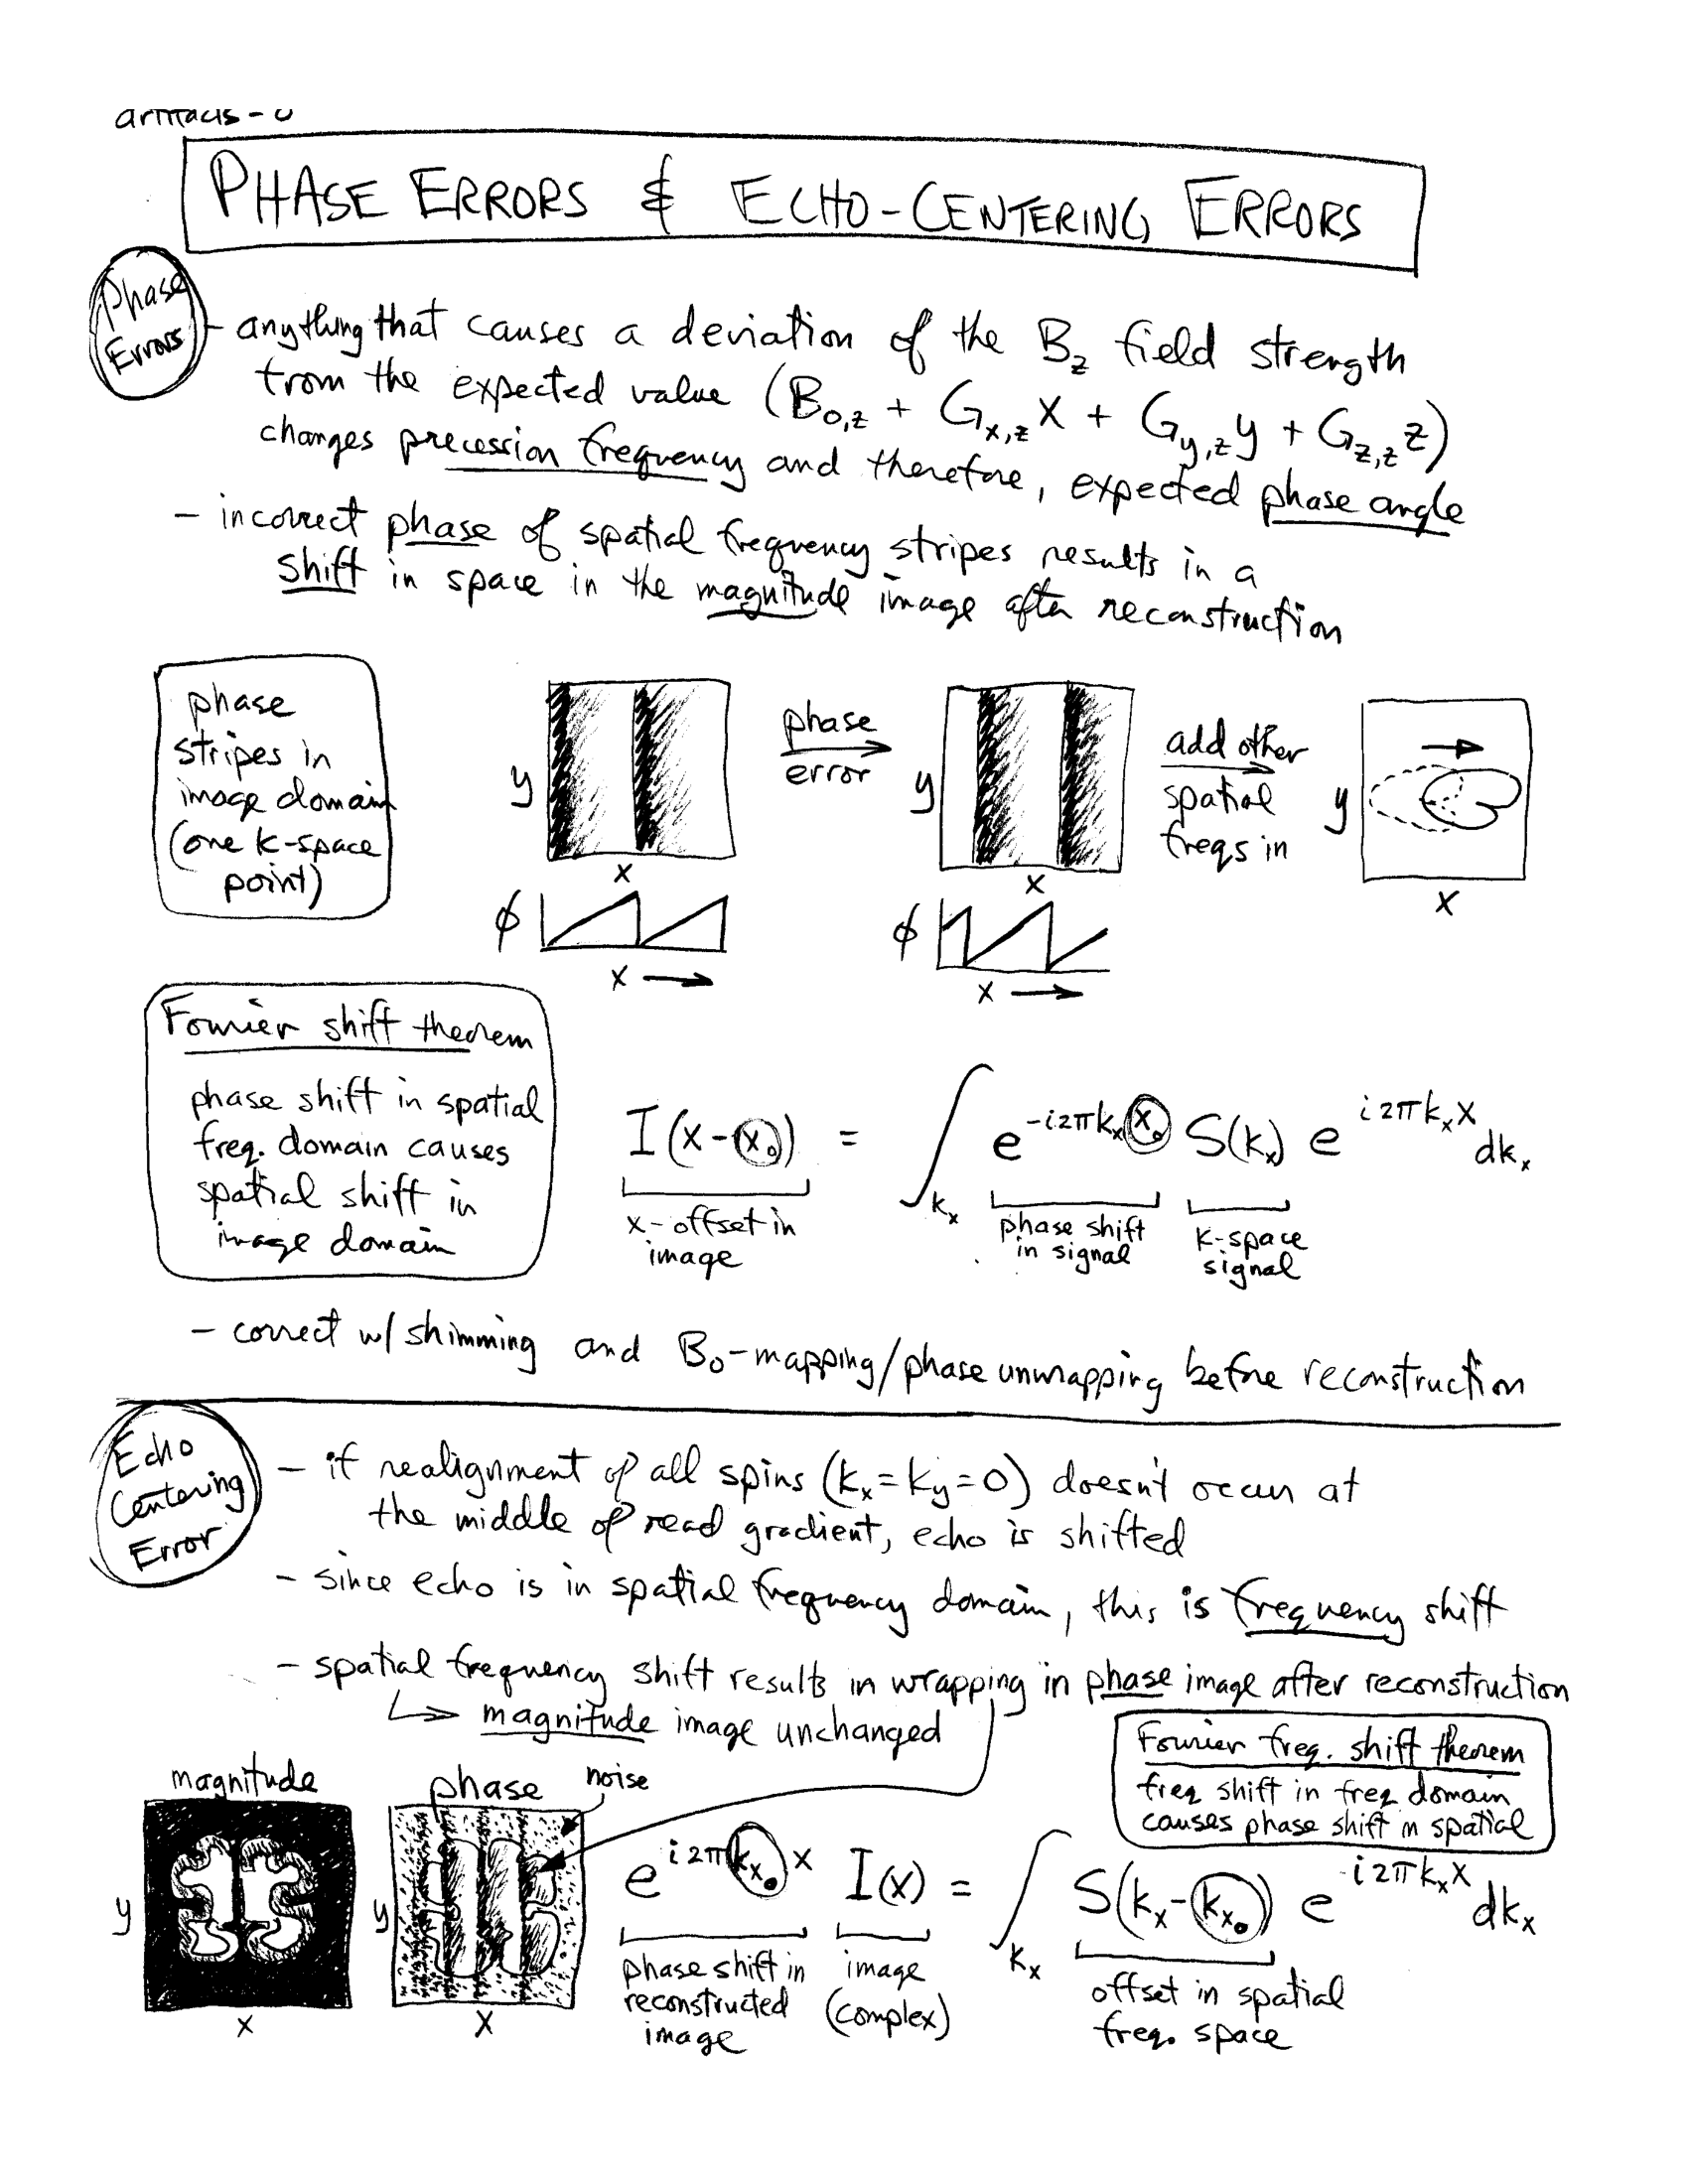 artifacts - 0
PHASE ERRORS & ECHO-CENTERING ERRORS
Phase
Errors
- anything that causes a deviation of the B_z field strength
from the expected value (B_{0,z} + G_{x,z} x + G_{y,z} y + G_{z,z} z)
changes precession frequency and therefore, expected phase angle
- incorrect phase of spatial frequency stripes results in a
shift in space in the magnitude image after reconstruction
phase
stripes in
image domain
(one k-space
point)
y
x
ϕ
x →
phase
error
y
x
ϕ
x →
add other
spatial
freqs in
y
x
Fourier shift theorem
phase shift in spatial
freq. domain causes
spatial shift in
image domain
I(x-x_0) = ∫_{k_x} e^{-i2πk_x x_0} S(k_x) e^{i2πk_x x} dk_x
x-offset in
image
phase shift
in signal
k-space
signal
- correct w/ shimming and B_0-mapping/phase unwrapping before reconstruction
Echo
Centering
Error
- if realignment of all spins (k_x = k_y = 0) doesn't occur at
the middle of read gradient, echo is shifted
- since echo is in spatial frequency domain, this is frequency shift
- spatial frequency shift results in wrapping in phase image after reconstruction
↳ magnitude image unchanged
Fourier freq. shift theorem
freq shift in freq domain
causes phase shift in spatial
magnitude
y
x
phase
noise
y
x
e^{i2πk_{x_0} x} I(x) = ∫_{k_x} S(k_x - k_{x_0}) e^{-i2πk_x x} dk_x
phase shift in
reconstructed
image
image
(complex)
offset in spatial
freq. space